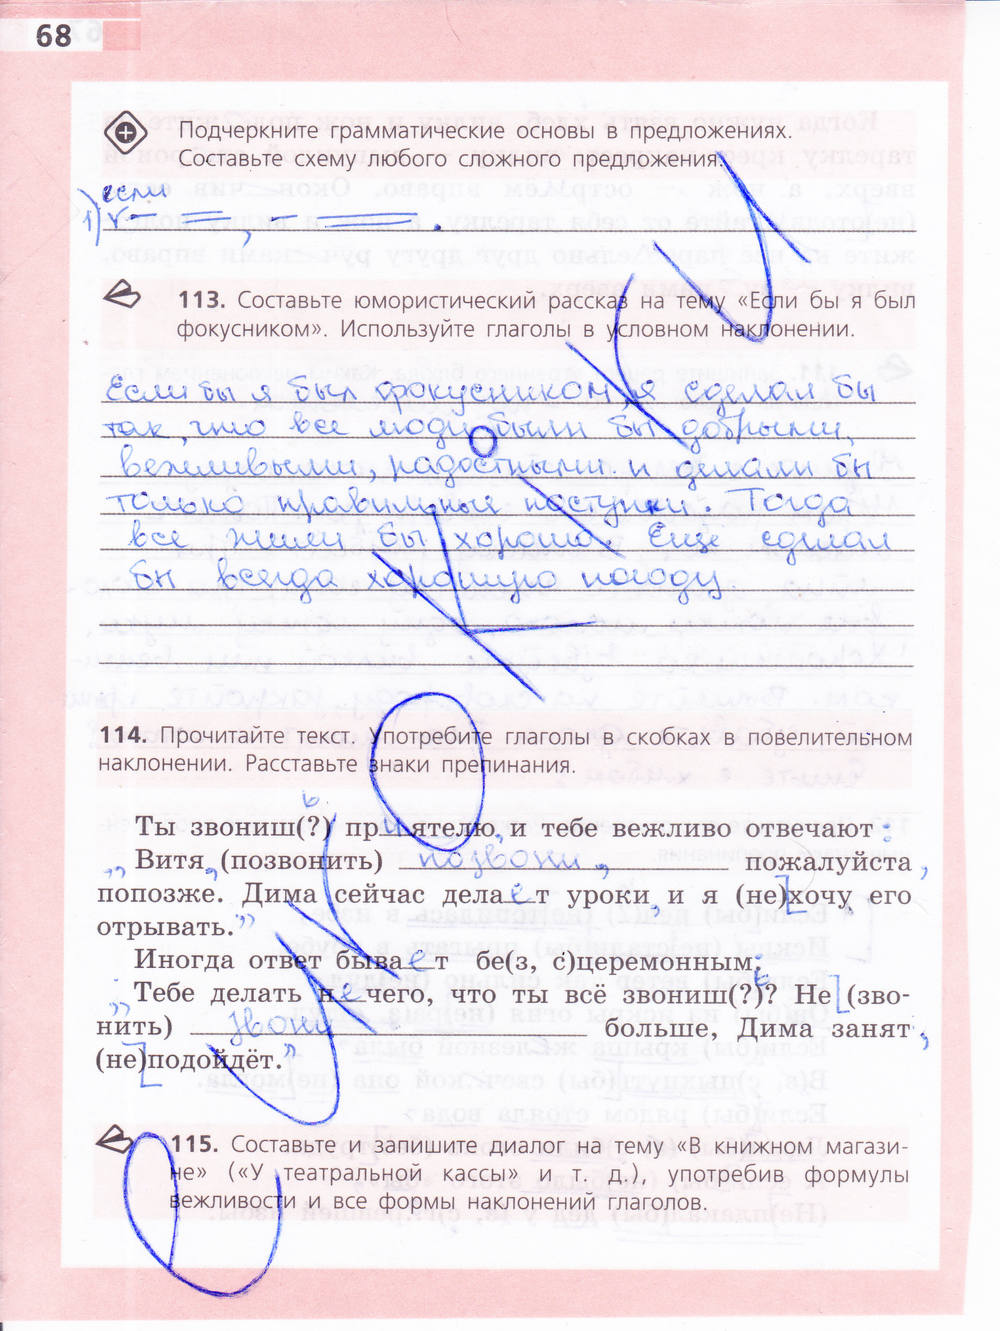 68
Подчеркните грамматические основы в предложениях.
Составьте схему любого сложного предложения.
если
1)
113. Составьте юмористический рассказ на тему «Если бы я был
фокусником». Используйте глаголы в условном наклонении.
Если бы я был фокусником, я сделал бы
так, что все люди были бы добрыми,
вежливыми, радостными и делали бы
только правильные поступки. Тогда
все жили бы хорошо. Ещё сделал
бы всегда хорошую погоду
114. Прочитайте текст, употребите глаголы в скобках в повелительном
наклонении. Расставьте знаки препинания.
ь
Ты звониш(?) приятелю, и тебе вежливо отвечают:
„Витя, (позвонить) позвони, пожалуйста,
попозже. Дима сейчас делает уроки, и я (не)хочу его
отрывать."
Иногда ответ бывает бе(з, с)церемонным:
„Тебе делать нечего, что ты всё звониш(?)ь? Не (зво-
нить) звони больше, Дима занят,
(не)подойдёт."
115. Составьте и запишите диалог на тему «В книжном магази-
не» («У театральной кассы» и т. д.), употребив формулы
вежливости и все формы наклонений глаголов.